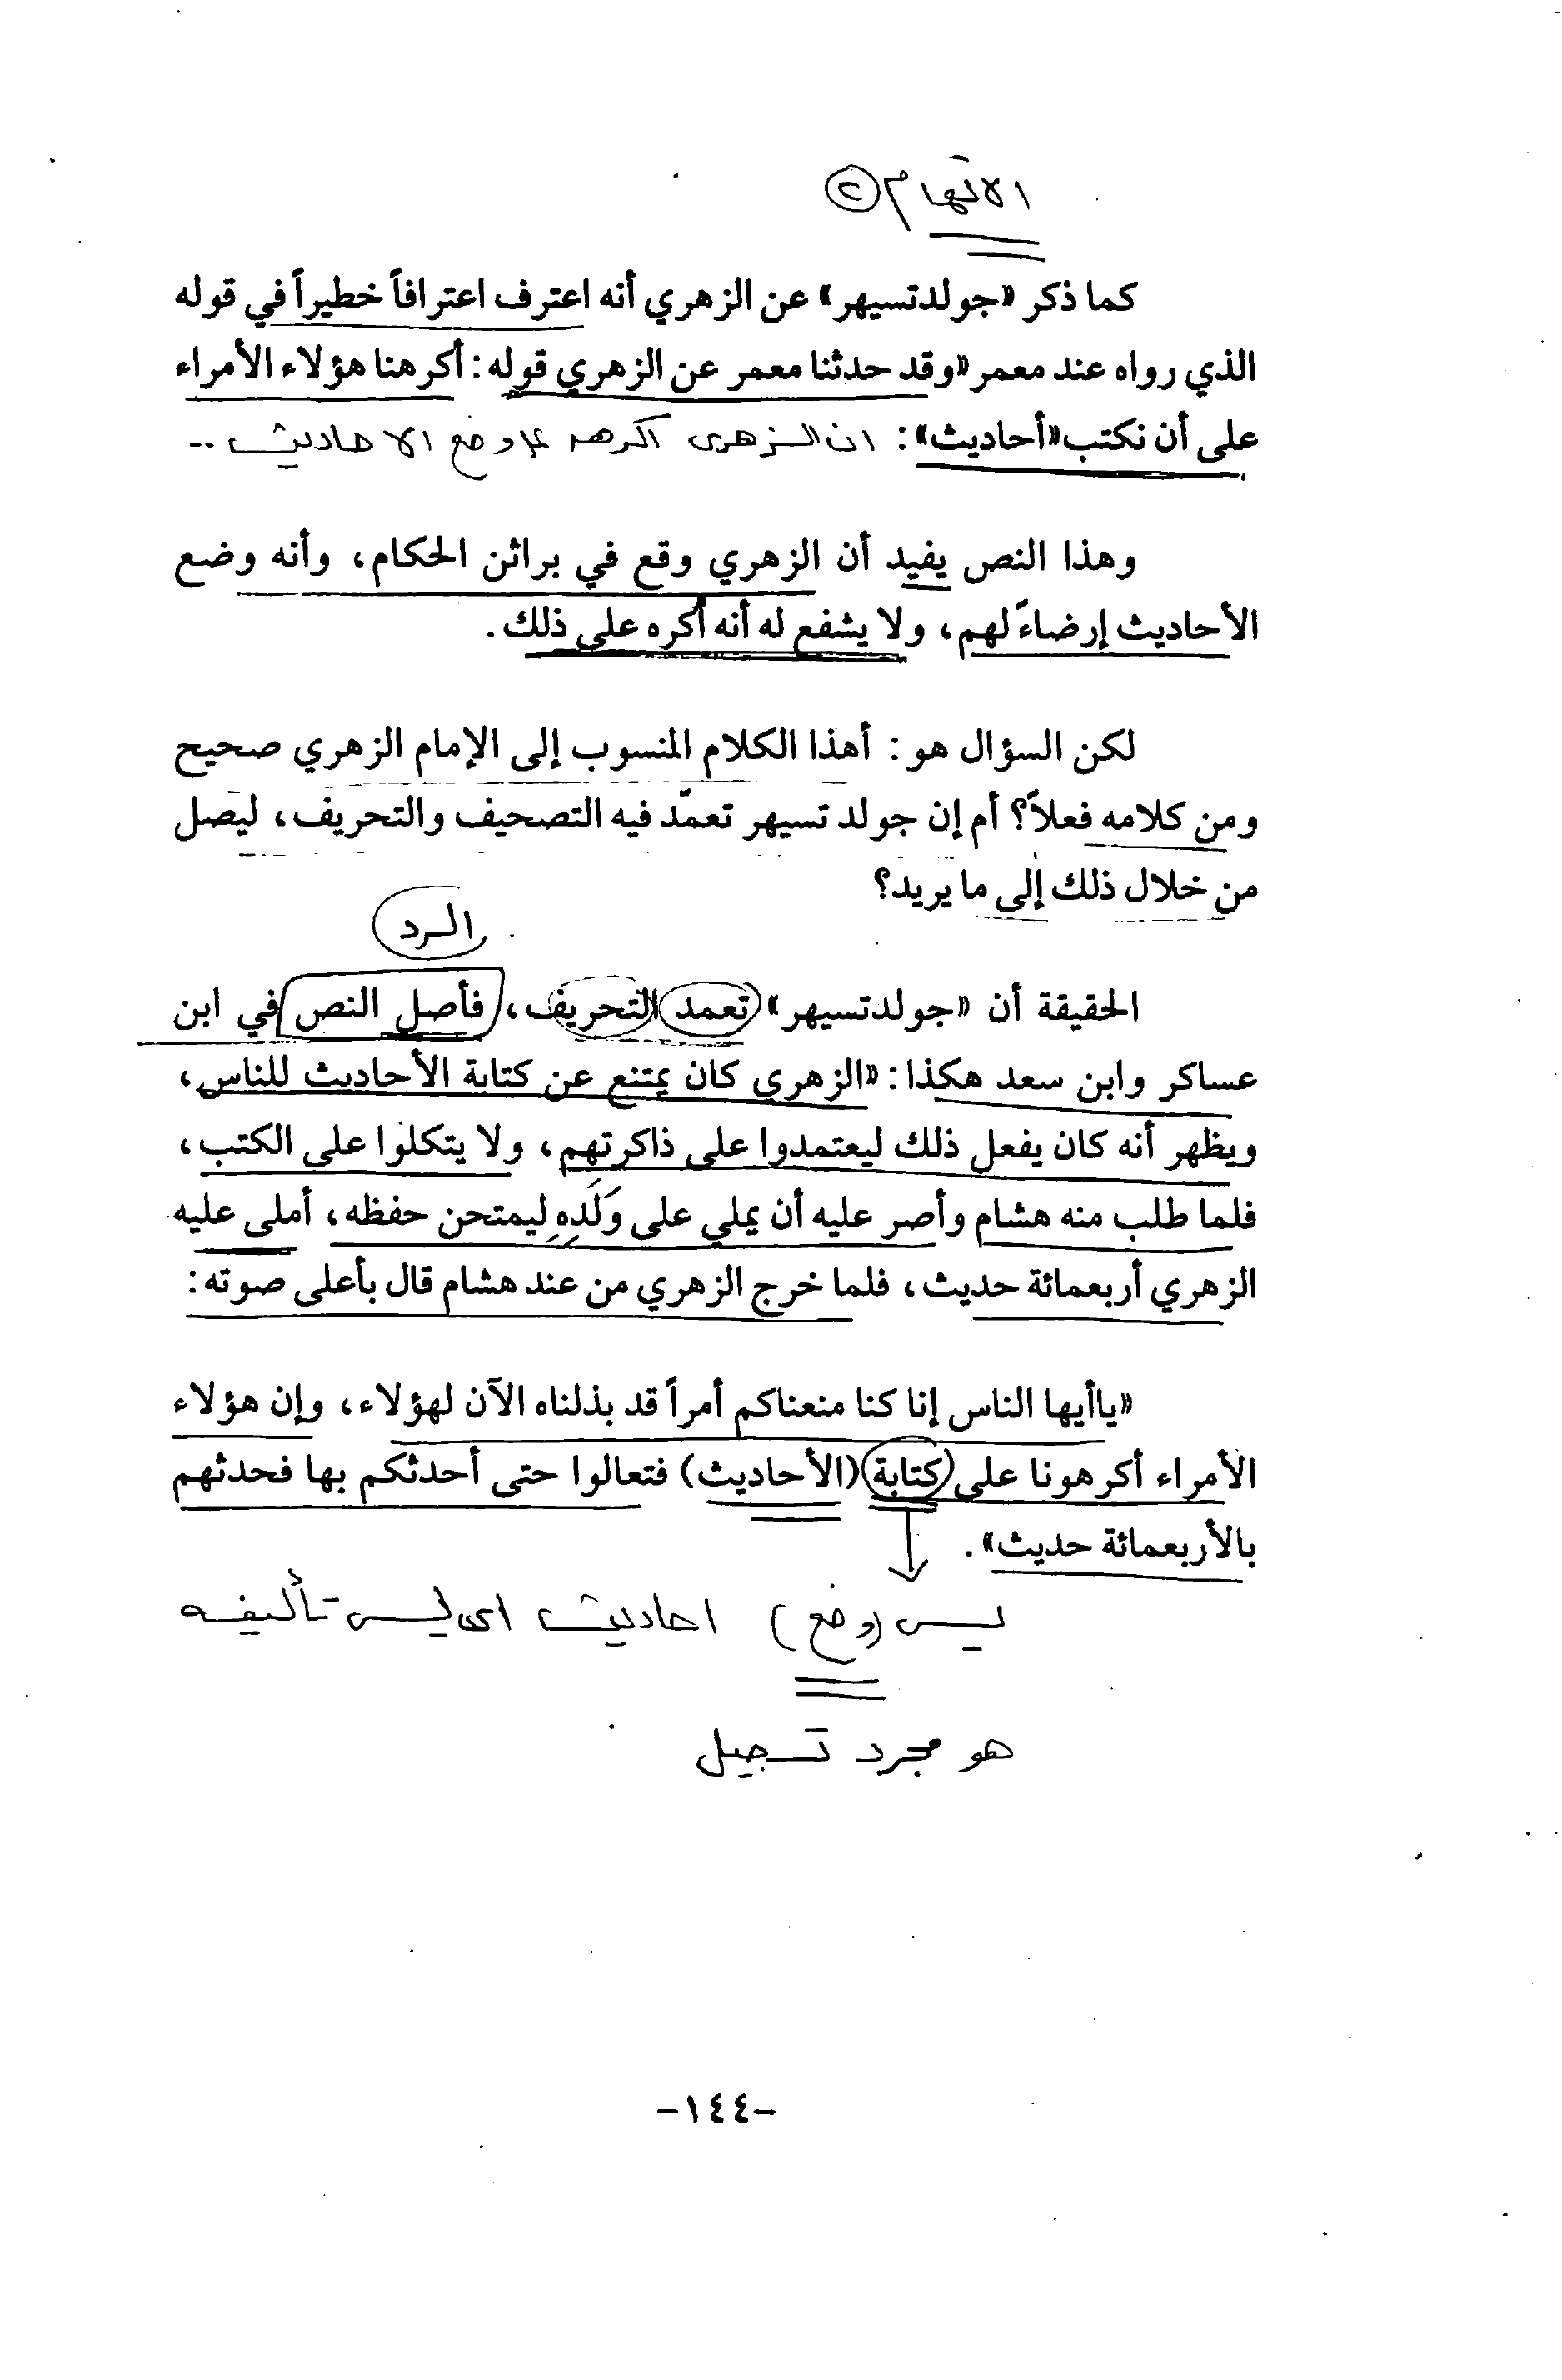 الاتهام ②
كما ذكر «جولدتسيهر» عن الزهري أنه اعترف اعترافاً خطيراً في قوله
الذي رواه عند معمر «وقد حدثنا معمر عن الزهري قوله: أكرهنا هؤلاء الأمراء
على أن نكتب «أحاديث»: ان الزهرى اكره على وضع الاحاديث ..
وهذا النص يفيد أن الزهري وقع في براثن الحكام، وأنه وضع
الأحاديث إرضاءً لهم، ولا يشفع له أنه أكره على ذلك.
لكن السؤال هو: أهذا الكلام المنسوب إلى الإمام الزهري صحيح
ومن كلامه فعلاً؟ أم إن جولد تسيهر تعمّد فيه التصحيف والتحريف، ليصل
من خلال ذلك إلى ما يريد؟
الرد
الحقيقة أن «جولدتسيهر» تعمد التحريف، فأصل النص في ابن
عساكر وابن سعد هكذا: «الزهري كان يمتنع عن كتابة الأحاديث للناس،
ويظهر أنه كان يفعل ذلك ليعتمدوا على ذاكرتهم، ولا يتكلوا على الكتب،
فلما طلب منه هشام وأصر عليه أن يملي على وَلَدِهِ ليمتحن حفظه، أملى عليه
الزهري أربعمائة حديث، فلما خرج الزهري من عند هشام قال بأعلى صوته:
«ياأيها الناس إنا كنا منعناكم أمراً قد بذلناه الآن لهؤلاء، وإن هؤلاء
الأمراء أكرهونا على (كتابة) (الأحاديث) فتعالوا حتى أحدثكم بها فحدثهم
بالأربعمائة حديث».
ليس (وضع) احاديث اى ليس تأليفه
هو مجرد تسجيل
-١٤٤-